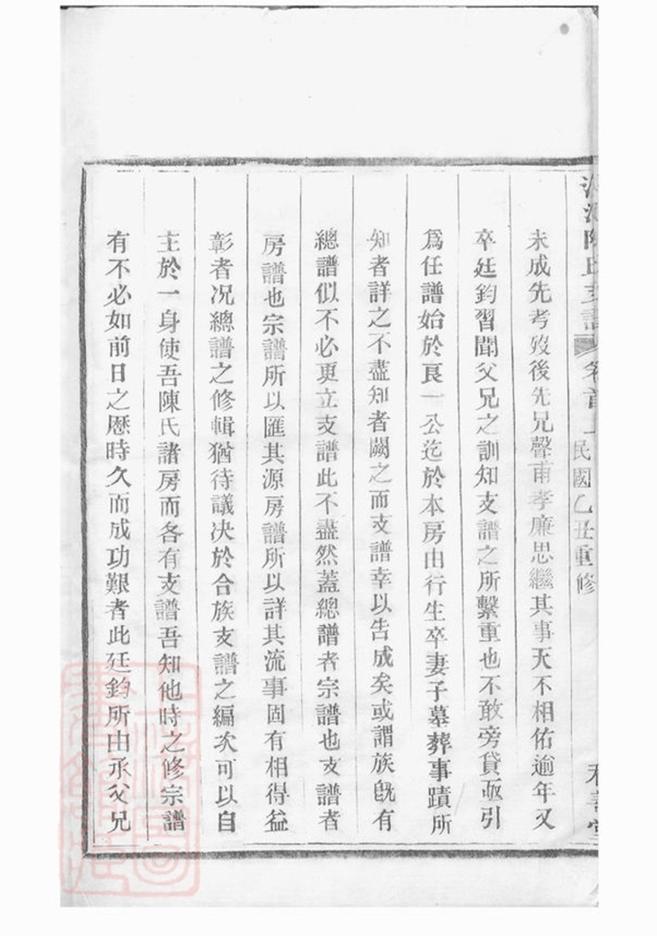 陳氏支譜 卷首 民國乙丑重修 善堂
未成先考歿後先兄聲甫孝廉思繼其事天不相佑逾年又
卒廷鈞習聞父兄之訓知支譜之所繫重也不敢旁貸亟引
爲任譜始於良一公迄於本房由行生卒妻子墓葬事蹟所
知者詳之不盡知者闕之而支譜幸以吿成矣或謂族旣有
總譜似不必更立支譜此不盡然蓋總譜者宗譜也支譜者
房譜也宗譜所以匯其源房譜所以詳其流事固有相得益
彰者况總譜之修輯猶待議决於合族支譜之編次可以自
主於一身使吾陳氏諸房而各有支譜吾知他時之修宗譜
有不必如前日之歷時久而成功艱者此廷鈞所由承父兄